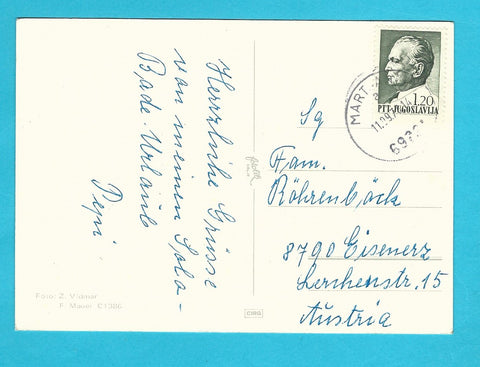 Herzliche Grüsse
von meinen Sola-
Bade-Urlaub
Pepi
Foto: Z. Vidmar
F. Mauer C1386
CIRG
1.20
PTT-JUGOSLAVIJA
MART
11.09.7
Sg
Fam.
Röhrenböck
8790 Eisenerz
Lerchenstr. 15
Austria